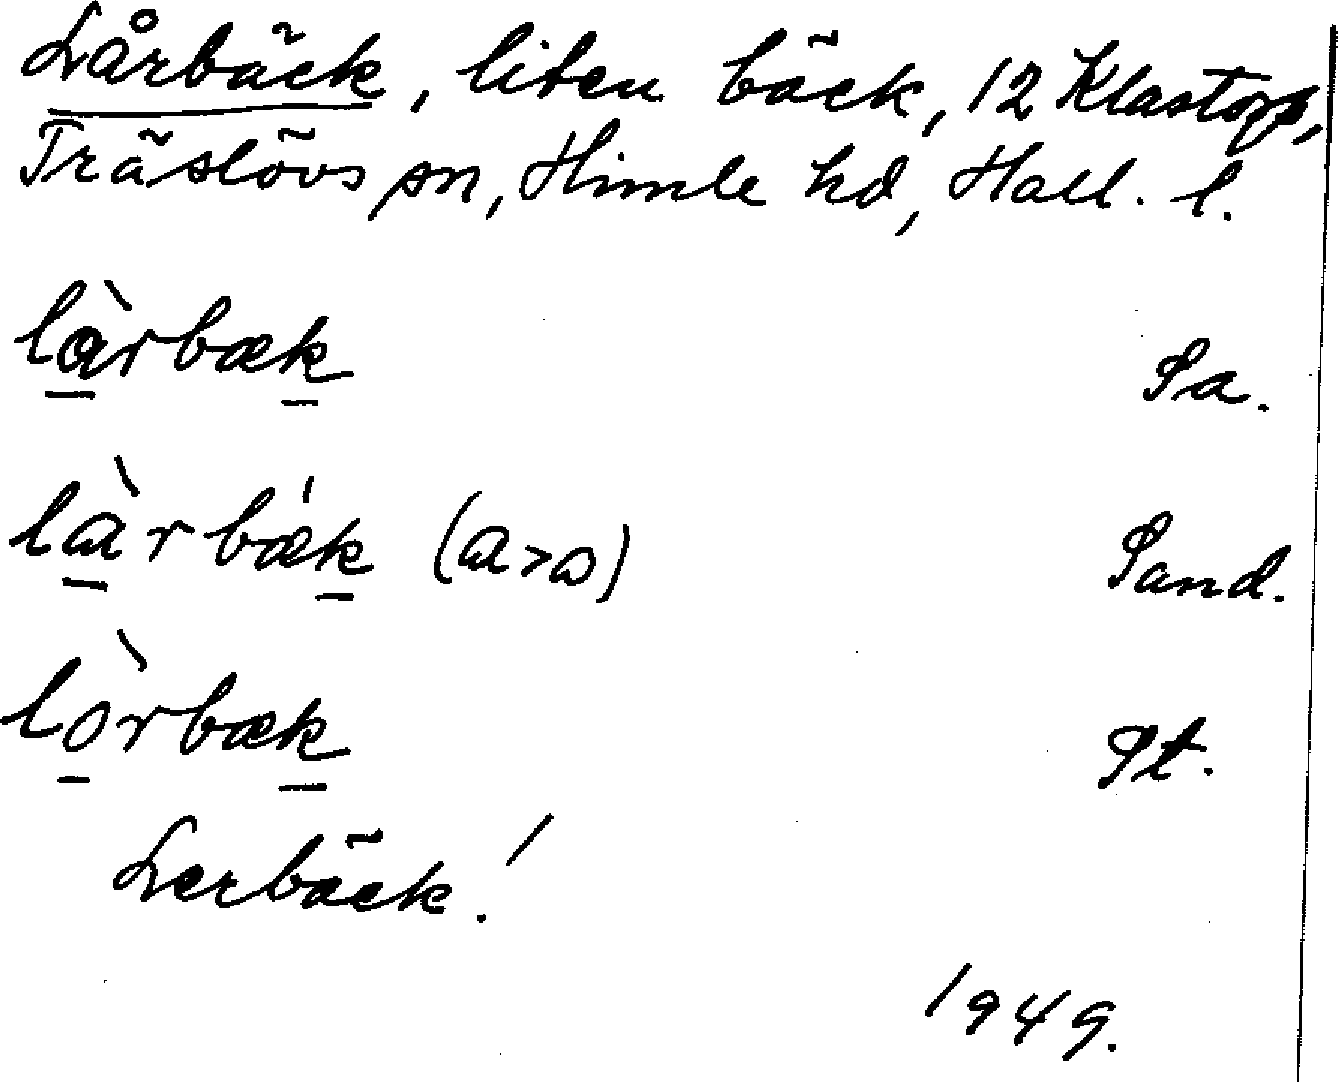 Lårbäck, liten bäck, 12 Klastorp,
Träslövs sn, Himle hd, Hall. l.
làrbæk Sa.
làrbǽk (a>ɷ) Sand.
lòrbæk St.
Lerbäck!
1949.